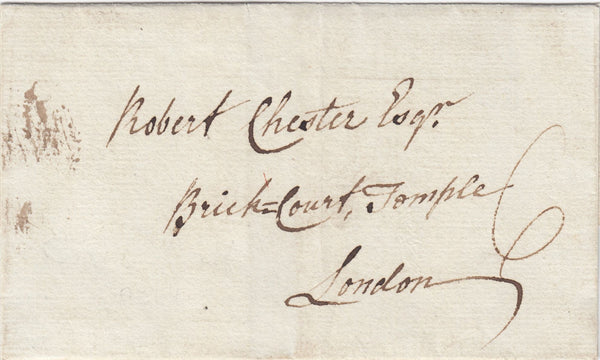 Robert Chester Esqr.
Brick=Court, Temple
London